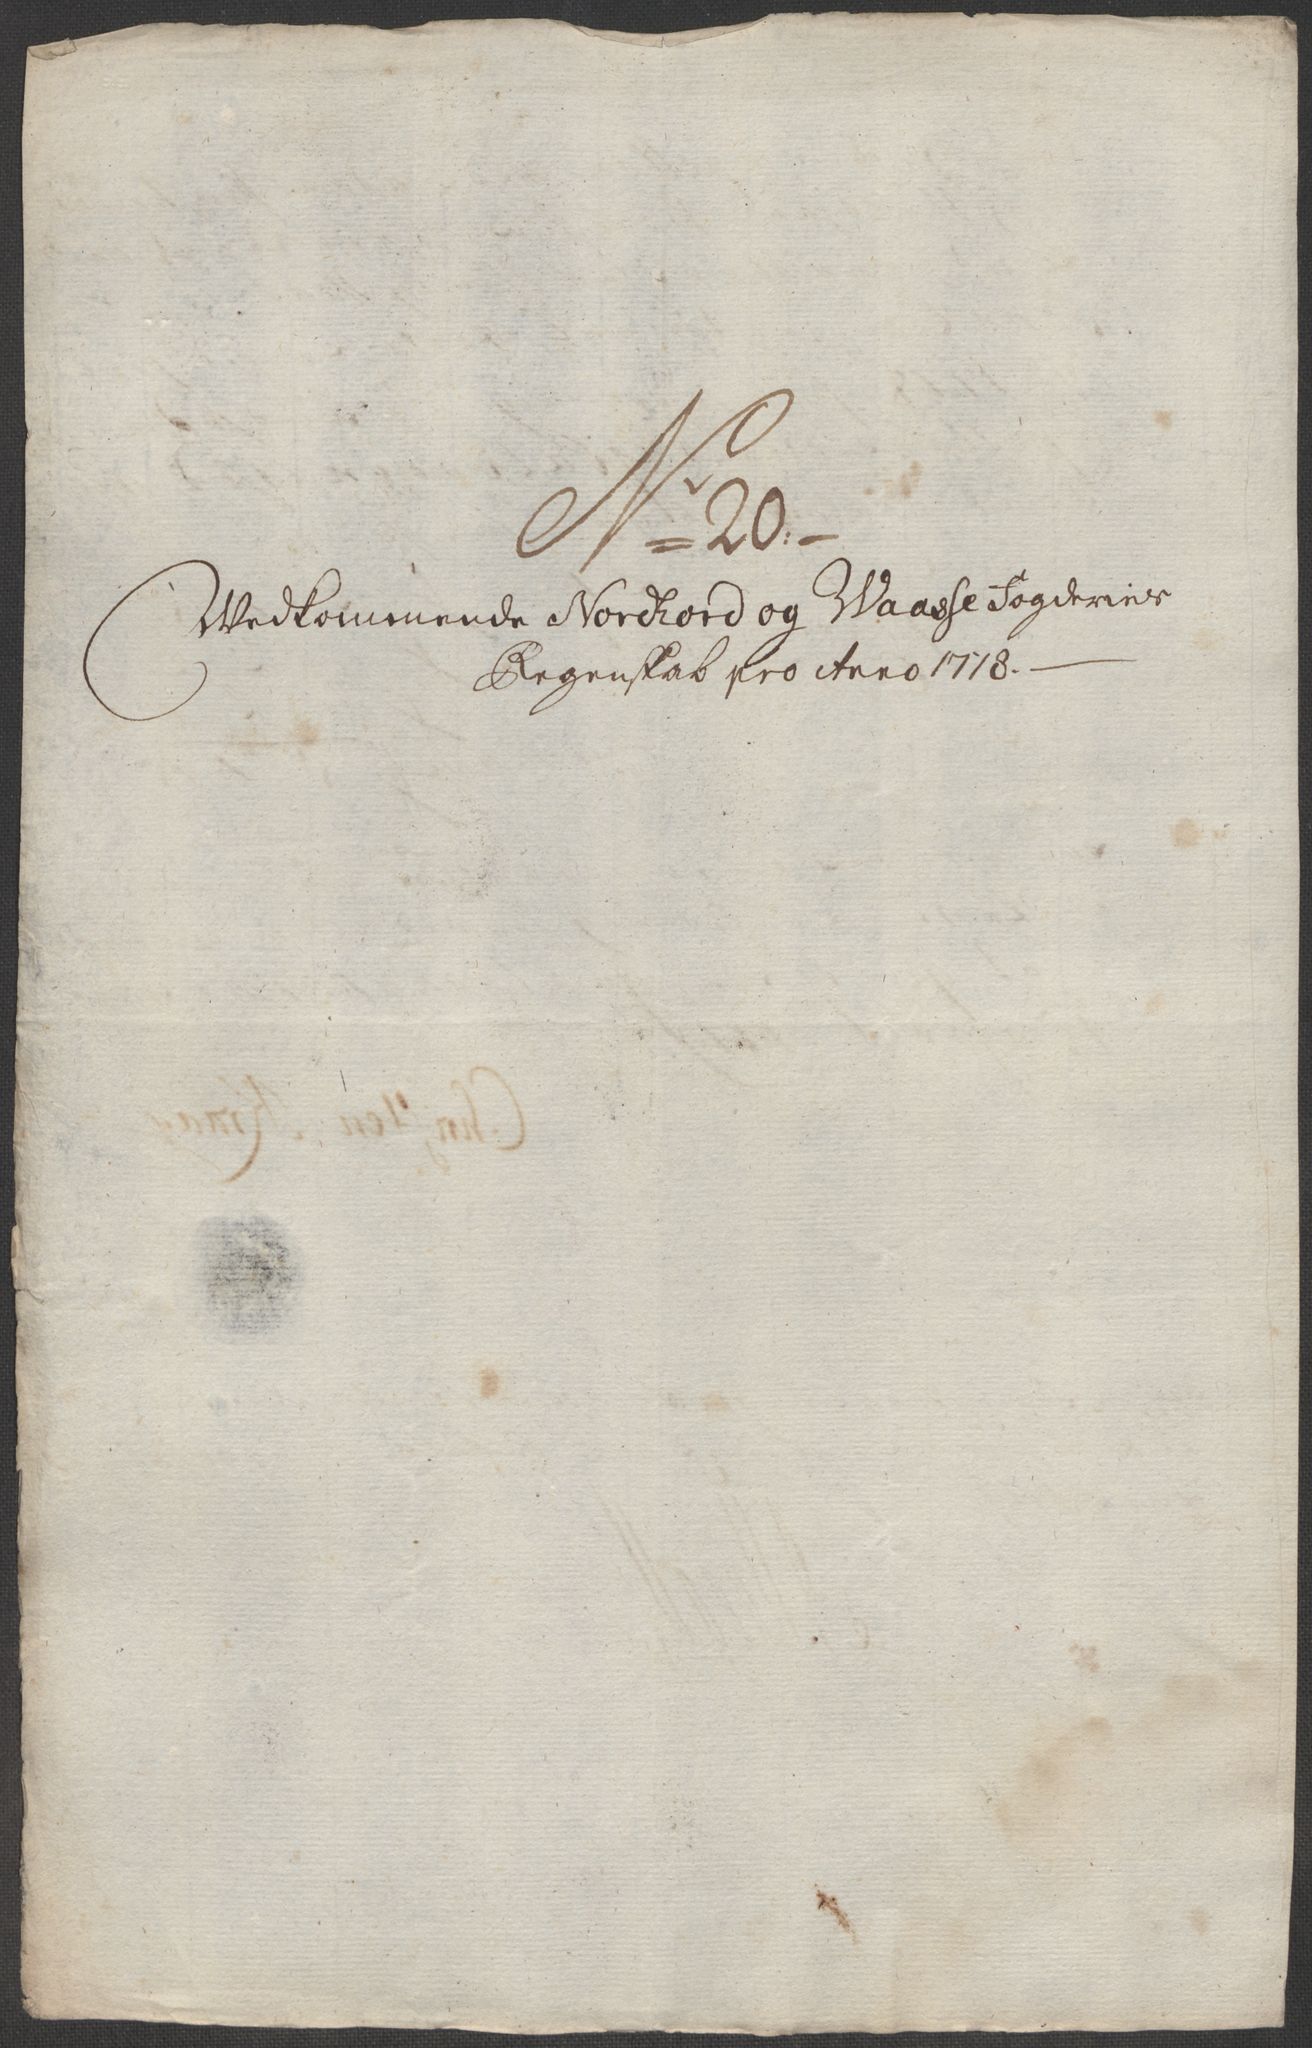 No 20.
Vedkommende Nordhord og Waasse Fogderier
Regenskab pro Anno 1718.